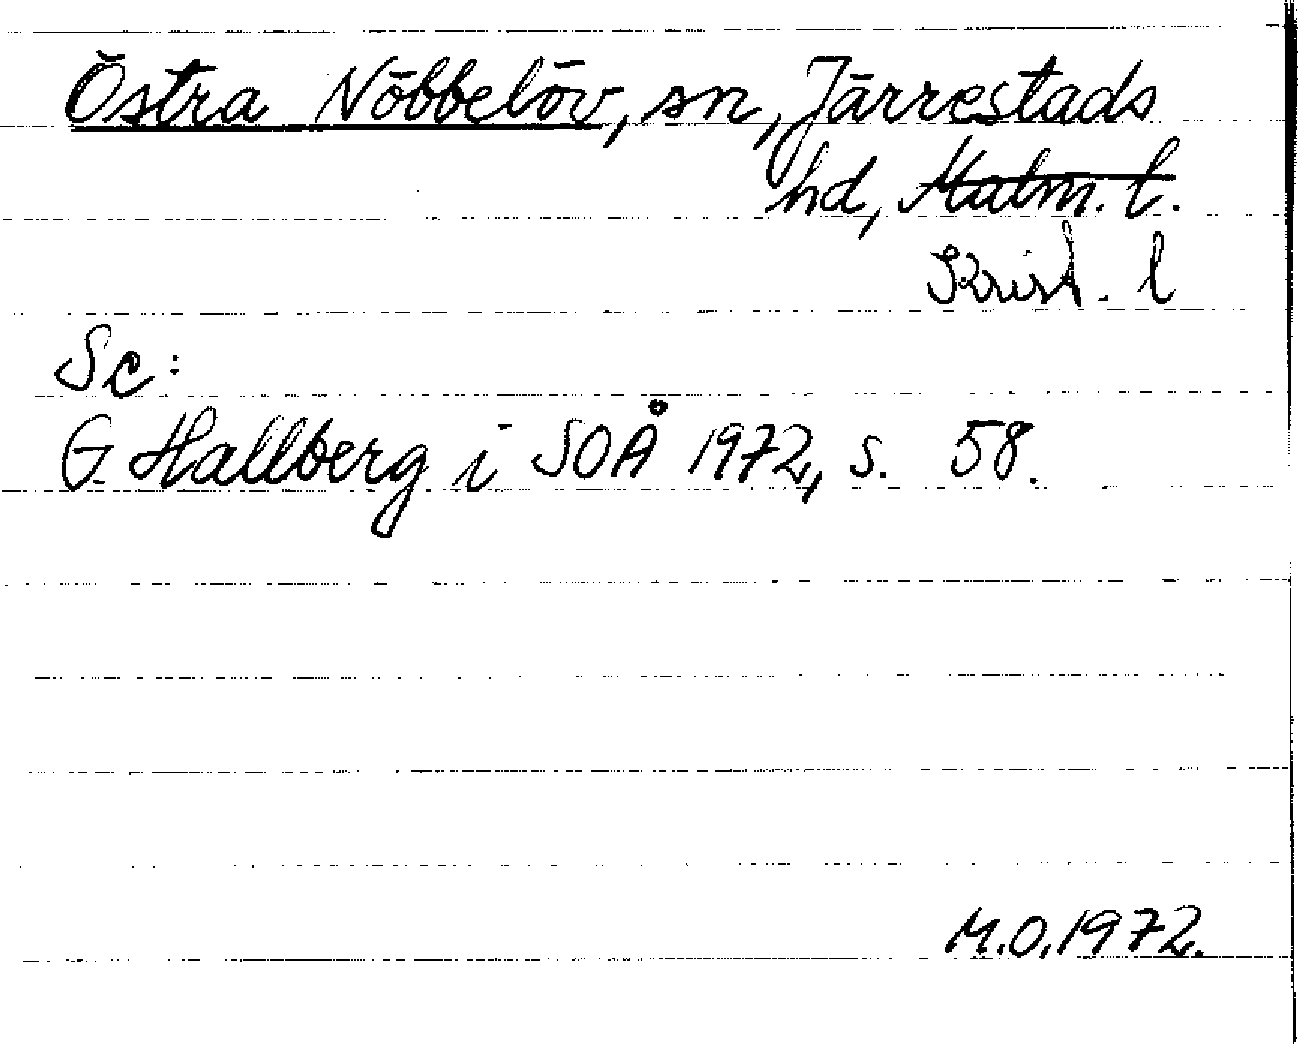 Östra Nöbbelöv, sn, Järrestads
hd, Malm. l.
Krist. l
Sc:
G. Hallberg i SOÅ 1972, s. 58.
M.O. 1972.